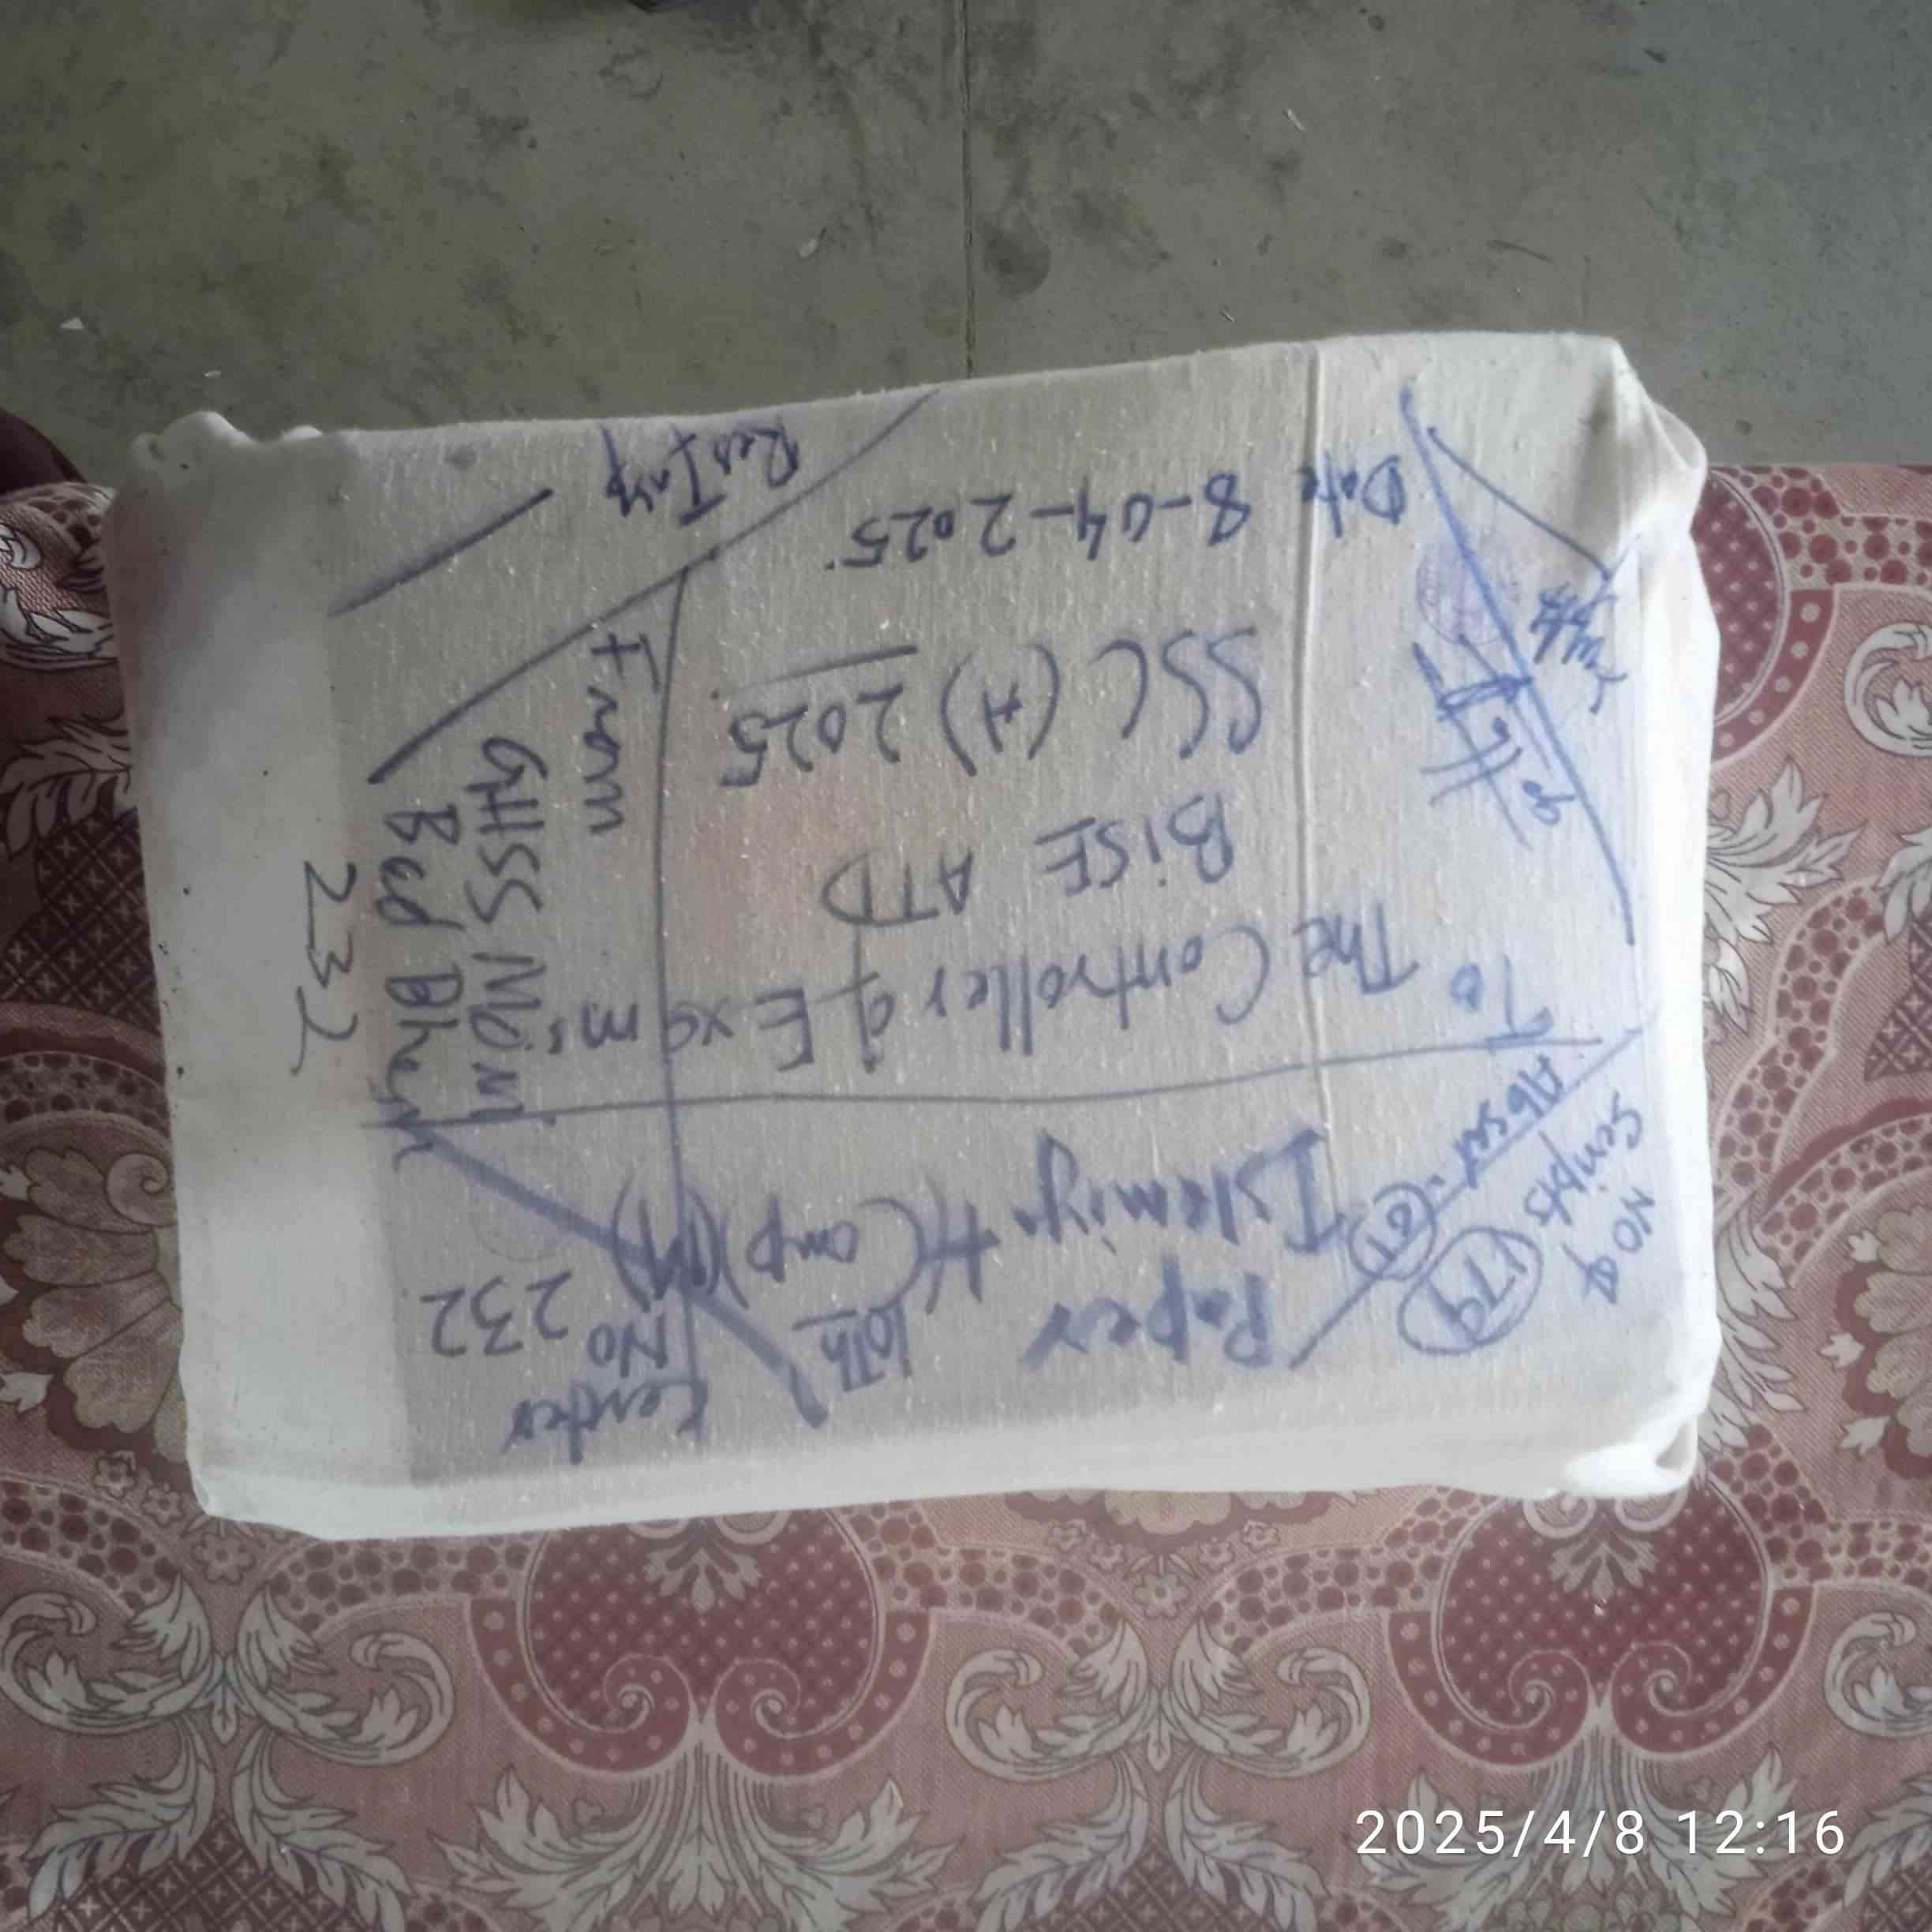 No of
Scripts 179
Absent = 01
Paper
Islamiyat (Comp)
10Th
Center
No 232
To
The Controller of Exams
BISE ATD
SSC (A) 2025
Date 8-04-2025
From
GHSS
Bad Bher
232
2025/4/8 12:16